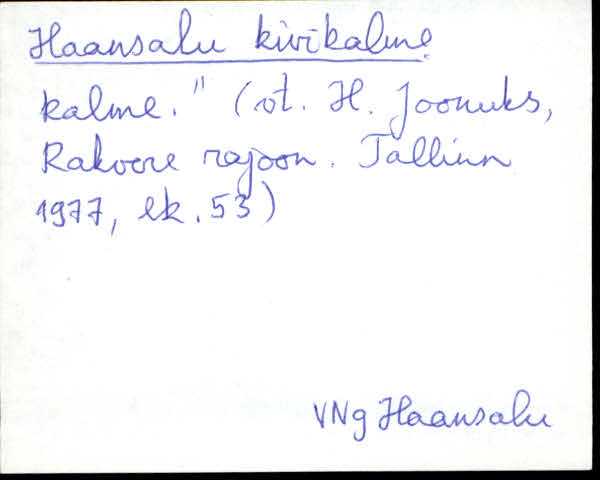 Haansalu kivikalme
kalme." (vt. H. Joonuks,
Rakvere rajoon. Tallinn
1977, lk. 53)
VNg Haansalu